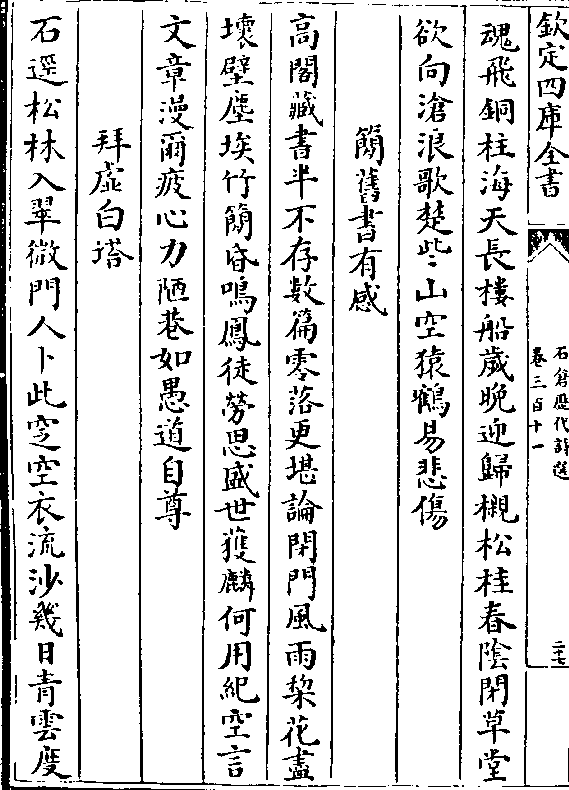 欽定四庫全書
石倉歷代詩選
卷三百十一
二七
魂飛銅柱海天長樓船歲晩迎歸櫬松桂春陰閉草堂
欲向滄浪歌楚些山空猿鶴易悲傷
簡舊書有感
高閣藏書半不存数篇零落更堪論閉門風雨梨花盡
壞壁塵埃竹簡昏鳴鳳徒勞思盛世獲麟何用紀空言
文章漫爾疲心力陋巷如愚道自尊
拜虛白塔
石逕松林入翠微門人卜此窆空衣流沙幾日青雲度